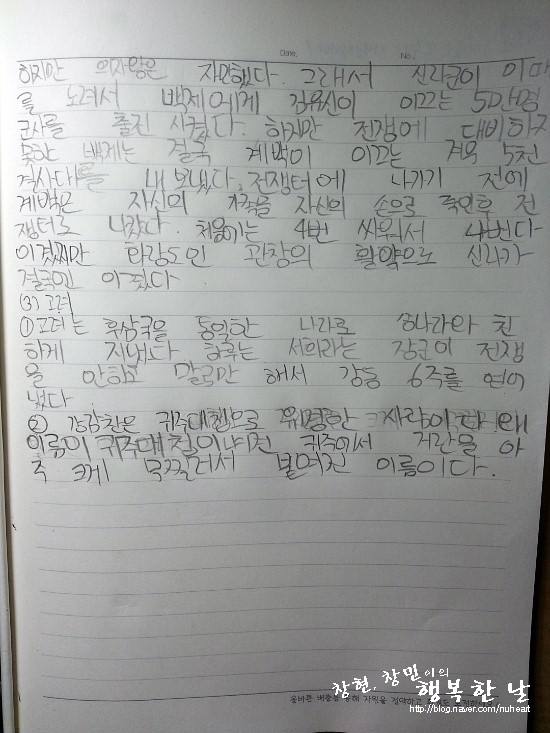 Date. No.
하지만 의자왕은 자만했다. 그래서 신라군이 이때
를 노려서 백제에게 김유신이 이끄는 5만명
군사를 출진 시켰다. 하지만 전쟁에 대비하지
못한 백제는 결국 계백이 이끄는 겨우 5천
결사대를 내보냈다. 전쟁터에 나가기 전에
계백은 자신의 가족을 자신의 손으로 죽인후 전
쟁터로 나갔다. 처음에는 4번 싸워서 4번다
이겼지만 화랑도인 관창의 활약으로 신라가
결국은 이겼다
(3) 고려
① 고려는 후삼국을 통일한 나라로 송나라와 친
하게 지냈다 서희라는 장군이 전쟁
을 안하고 말로만 해서 강동 6주를 얻어
냈다
② 강감찬은 귀주대첩으로 유명한 사람이다 왜
이름이 귀주대첩이냐면 귀주에서 거란을 아
주 크게 무찔러서 붙여진 이름이다.
창현, 창민이의
행복한 날
http://blog.naver.com/nuheart